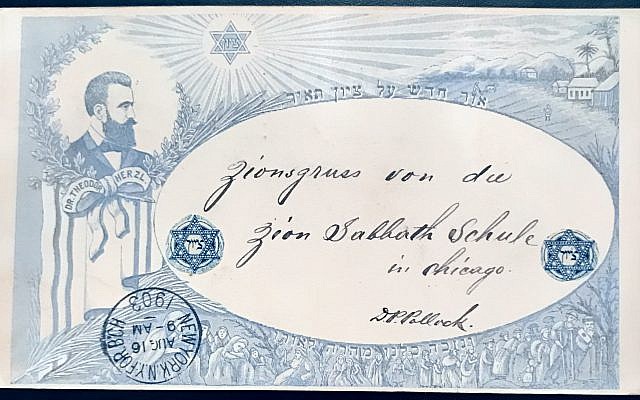 ציון
אור חדש על ציון תאיר
DR. THEODOR HERZL
Zionsgruss von die
Zion Sabbath Schule
in Chicago.
ציון
ציון
D.P. Pollock.
NEW YORK, N.Y. FOR. BCH
AUG 16
9-AM
1903
ונזכה כלנו מהרה לאורו